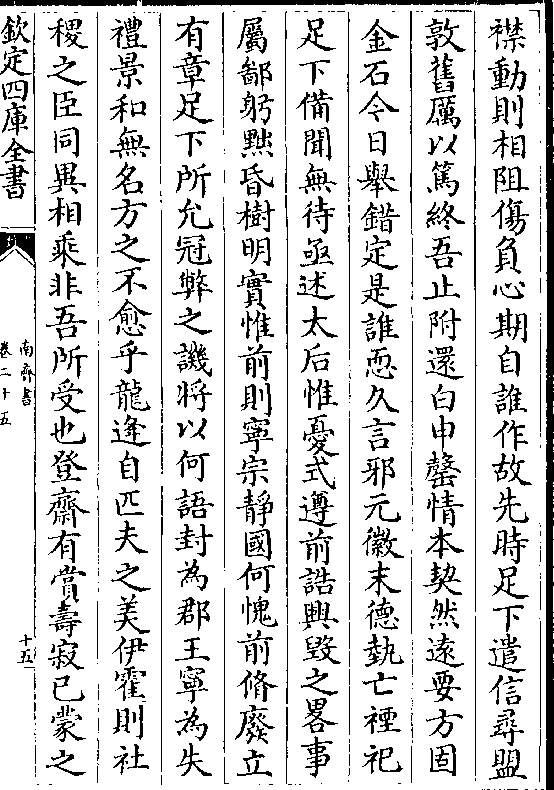 襟動則相阻傷負心期自誰作故先時足下遣信尋盟
敦舊厲以篤終吾止附還白申罄情本契然遠要方固
金石令日舉錯定是誰恧久言邪元徽末德埶亡禋祀
足下備聞無待亟述太后惟憂式遵前誥興毀之畧事
屬鄙躬黜昏樹明實惟前則寧宗靜國何愧前脩廢立
有章足下所允冠弊之譏將以何語封為郡王寧為失
禮景和無名方之不愈乎龍逄自匹夫之美伊霍則社
稷之臣同異相乘非吾所受也登齋有賞壽寂已蒙之
欽定四庫全書
南齊書
卷二十五
十五